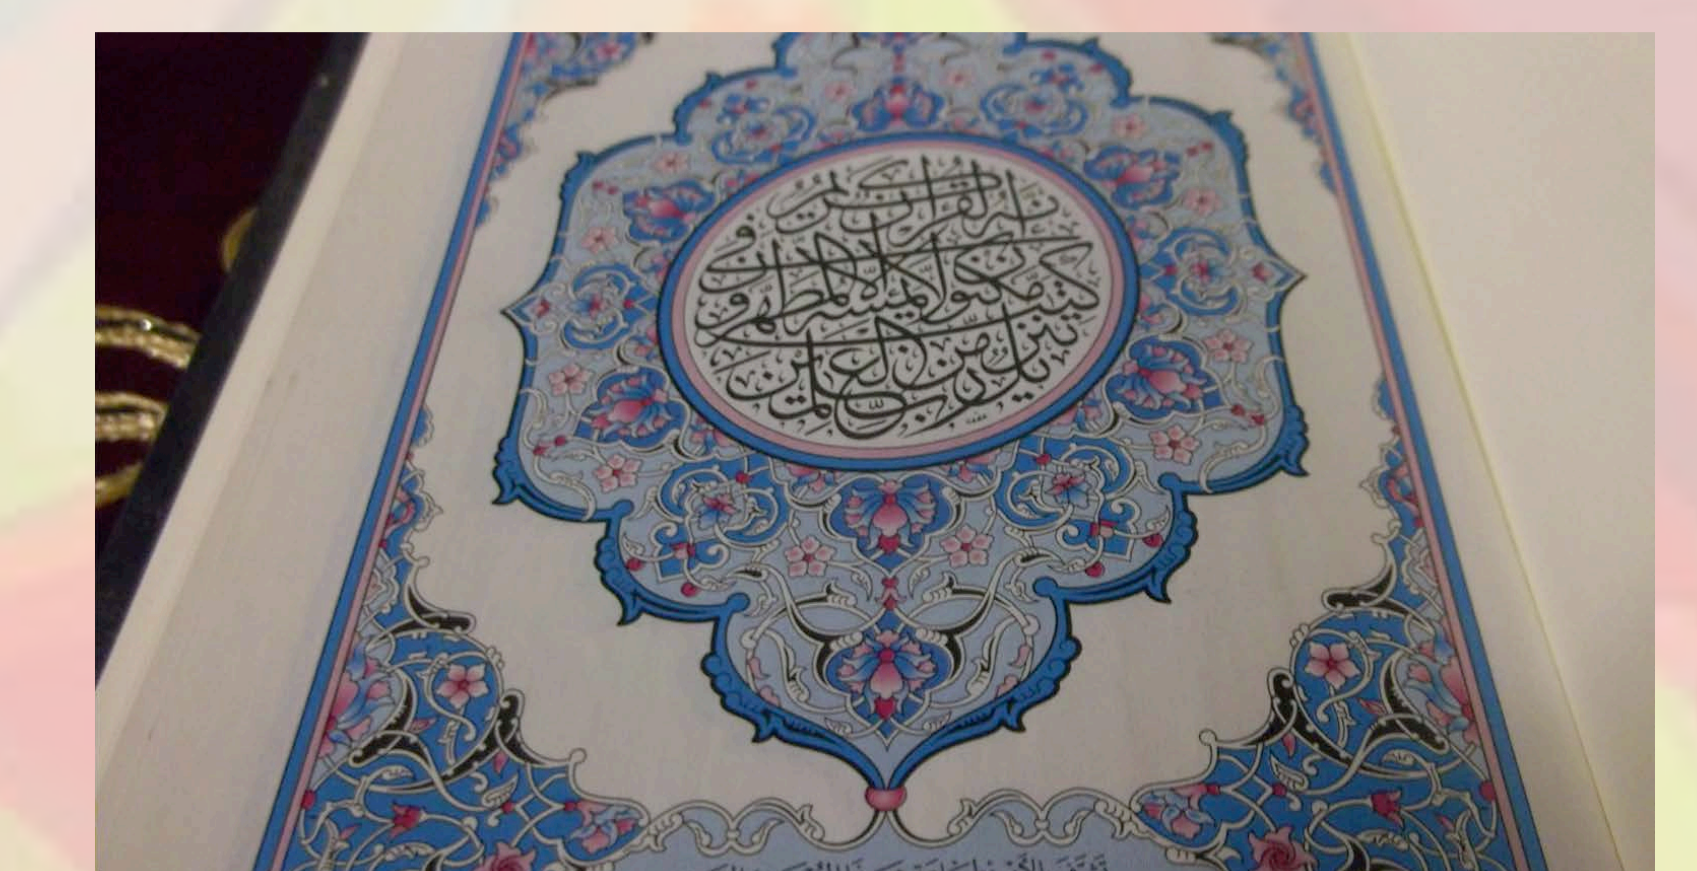 إِنَّهُ لَقُرْءَانٌ كَرِيمٌ
فِي كِتَٰبٍ مَّكْنُونٍ لَّا يَمَسُّهُ إِلَّا الْمُطَهَّرُونَ
تَنزِيلٌ مِّن رَّبِّ الْعَٰلَمِينَ